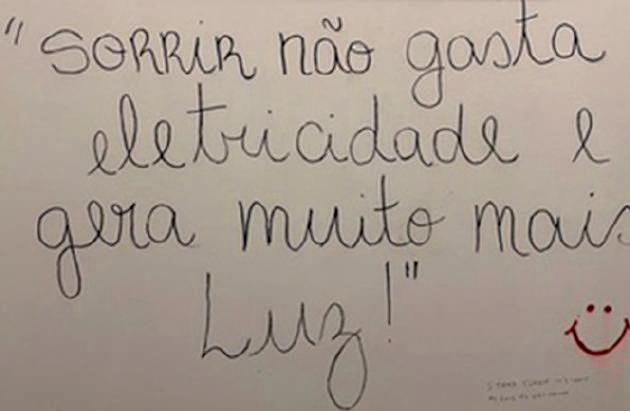 "SORRIR não gasta
eletricidade e
gera muito mais
Luz!"